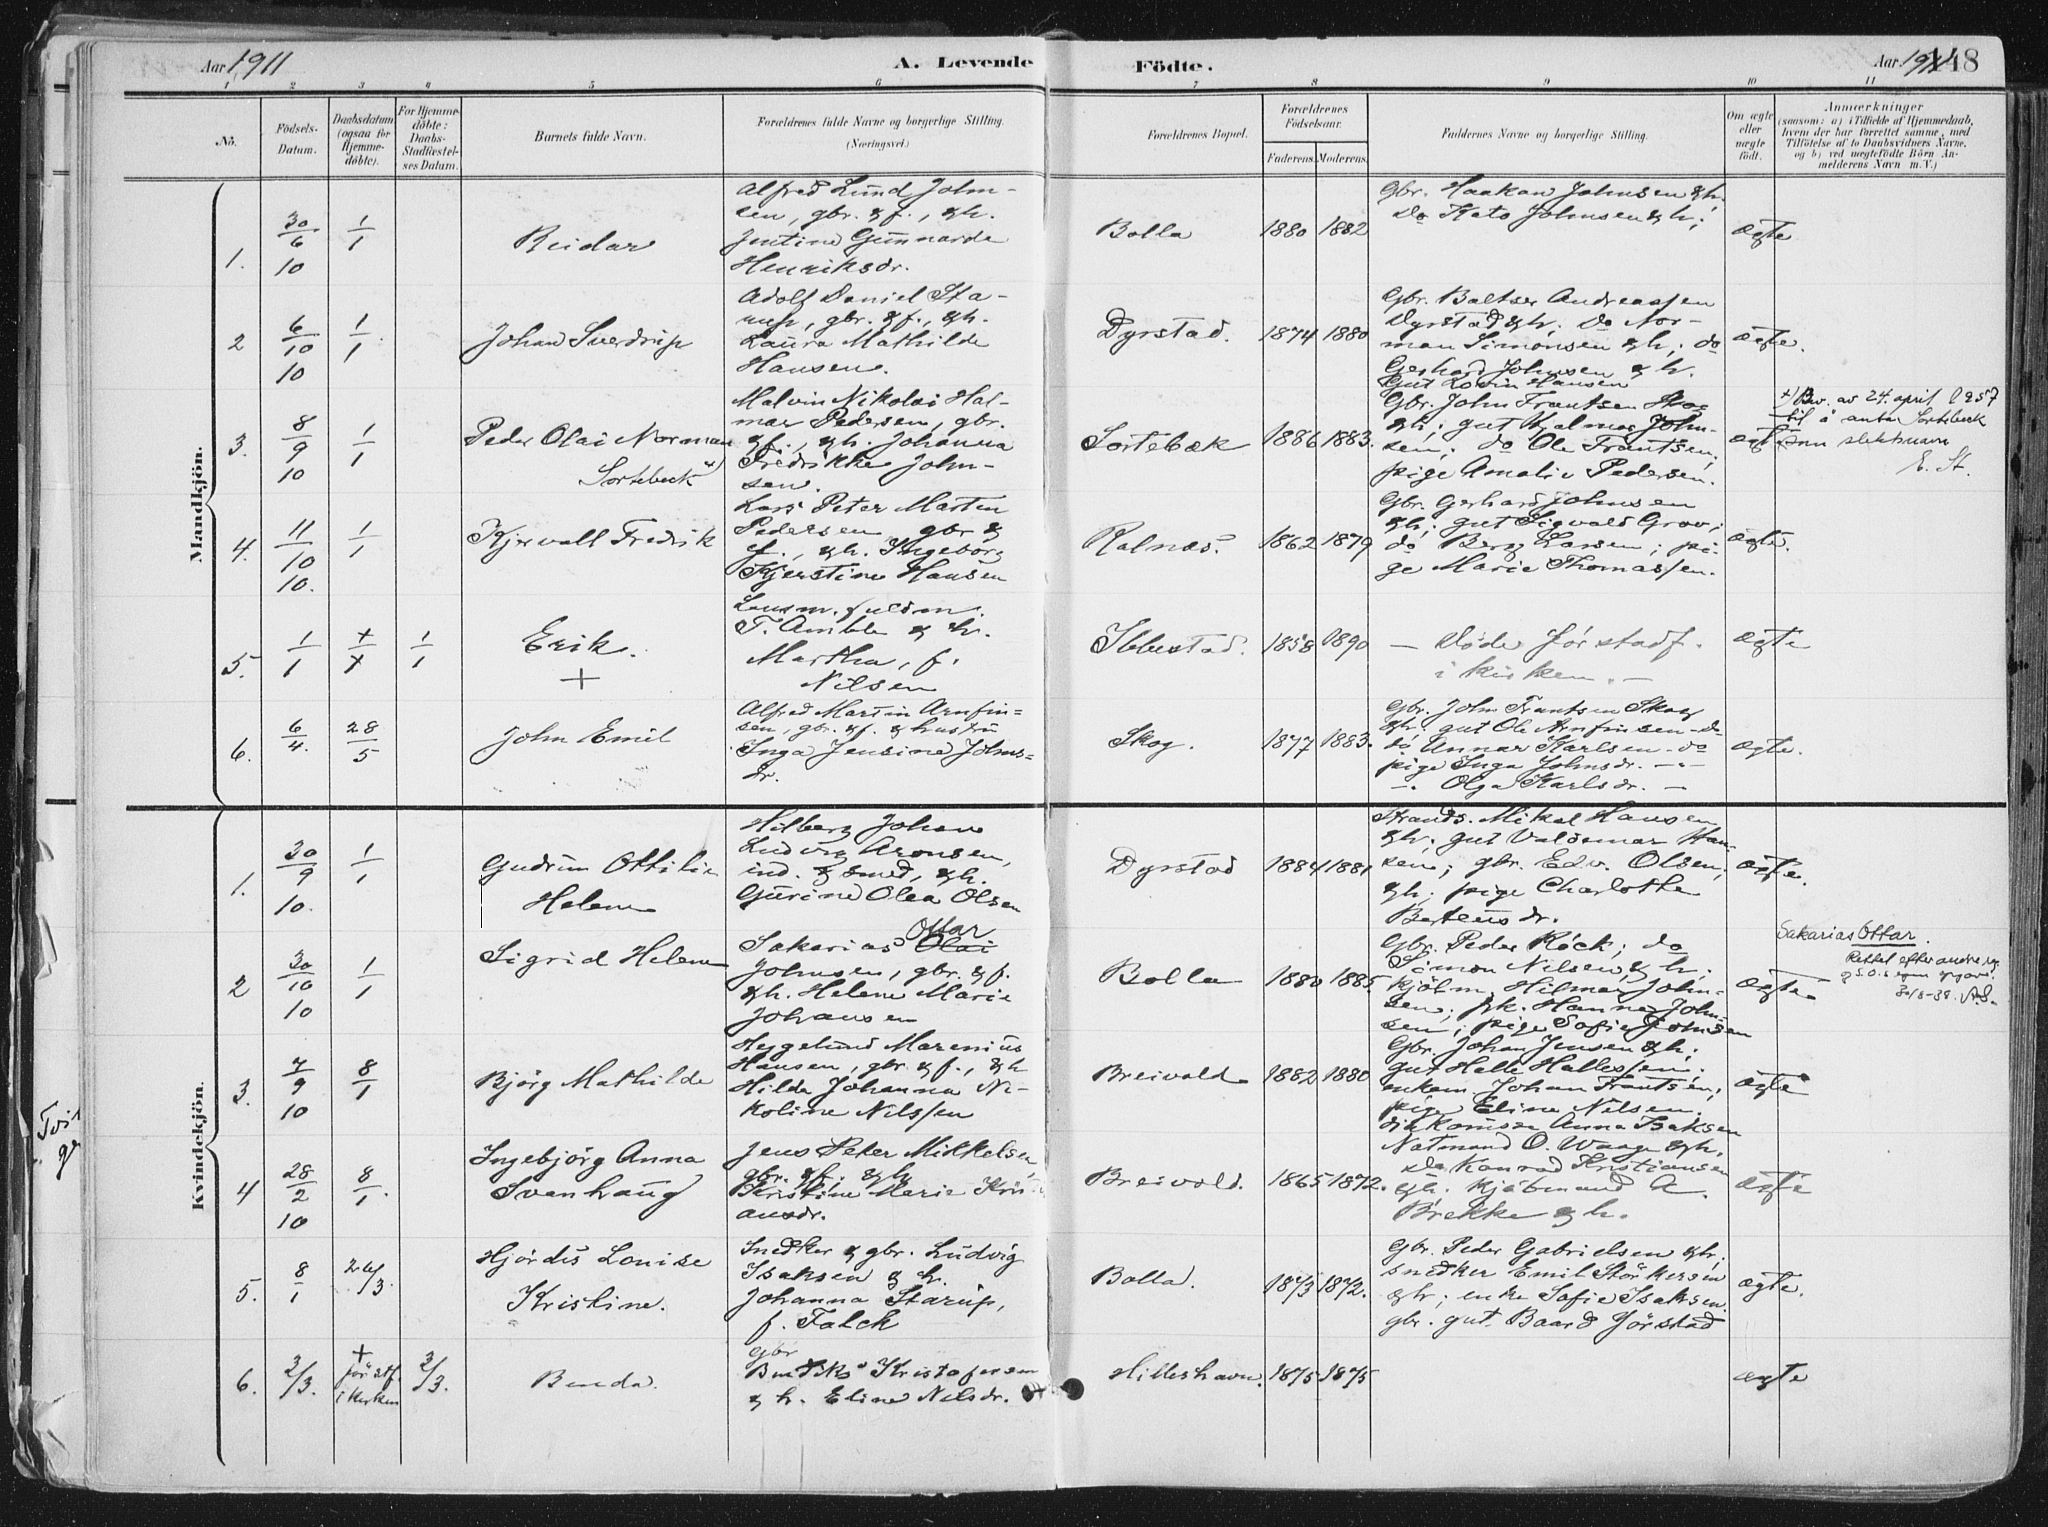 Aar 1911
A. Levende Födte.
Aar 1911
148
1 2 3 4 5 6 7 8 9 10 11
No.
Födsels-
Datum.
Daabsdatum
(ogsaa for
Hjemme-
döbte).
For Hjemme-
döbte:
Daabs-
Stadfæstel-
ses Datum.
Barnets fulde Navn.
Forældrenes fulde Navne og borgerlige Stilling.
(Næringsvei.)
Forældrenes Bopæl.
Forældrenes
Födselsaar.
Faderens.
Moderens.
Faddernes Navne og borgerlige Stilling.
Om ægte
eller
uægte
födt.
Anmærkninger
(saasom: a) i Tilfælde af Hjemmedaab,
hvem der har forrettet samme, med
Tilföielse af to Daabsvidners Navne,
og b) ved uægtefödte Börn An-
melderens Navn m. V.)
Mandkjön.
1.
30/6 10
1/1
Reidar
Alfred Lund John-
sen, gbr. & f., & h.
Jentine Gunnarda
Henriksdr.
Bolla
1880
1882
Gbr. Haakon Johnsen & h;
do Kato Johnsen & h;
ægte
2
6/10 10
1/1
Johan Sverdrup
Adolf Daniel Sta-
rup, gbr. & f., & h.
Laura Mathilde
Hansen.
Dyrstad.
1874
1880
Gbr. Baltser Andreassen
Dyrstad & h; do Nor-
man Simonsen & h; do
Gerhard Johnsen & h.
Gut Edvin Hansen
ægte.
3.
8/9 10
1/1
Peder Olai Norman
Sortebeck x)
Malvin Nikolai Hal-
mar Pedersen, gbr.
& f., & h. Johanna
Fredrikke John-
sen.
Sortebæk
1886
1883.
Gbr. John Frantsen Skog
& h; gut Hjalmar John-
sen; do Ole Frantsen;
pige Amalie Pedersen.
ægte
x) Bev. av 24. april 1957
til å anta Sortebeck
som slektsnavn
E. St.
4.
11/10 10.
1/1
Kjervall Fredrik
Lars Peter Martin
Pedersen gbr &
f., & h. Ingeborg
Kjerstine Hansen
Rolnæs.
1862
1879
Gbr. Gerhard Johnsen
& h; gut Sigvald Grov;
do Berg Larsen; pi-
ge Marie Thomassen.
ægte.
5.
1/1
+
1/1
Erik.
+
Lensm. fuldm.
T. Amble & h.
Martha, f.
Nilsen
Ibbestad.
1858
1890
— Döde før stadf.
i kirken. —
ægte
6.
6/4.
28/5
John Emil
Alfred Martin Arnfin-
sen, gbr. & f. & hustru
Inga Jensine Johns-
dr.
Skog.
1877
1883.
Gbr. John Frantsen Skog
& h; gut Ole Arnfinsen - do
do Annar Karlsen - do
pige Inga Johnsdr. - " -
- " - Olga Karlsdr. -
ægte.
Kvindekjön.
1.
30/9 10.
1/1
Gudrun Ottilie
Helene
Hilberg Johan
Ludvig Aronsen,
ind. & smed, & h.
Gurine Olea Olsen
Dyrstad
1884
1881
Strands. Mikal Hansen
& h; gut Valdemar Han-
sen; gbr. Edv. Olsen;
& h; pige Charlotte
Berteusdr.
ægte.
2
30/10 10
1/1
Sigrid Helene
Ottar
Sakarias Olai
Johnsen, gbr. & f.
& h. Helene Marie
Johansen
Bolla
1880
1885.
Gbr. Peder Röck; do
Simon Nilsen & h;
kjöbm. Hilmar John-
sen; frk. Hanna John-
sen; pige Sofie Johnsen
ægte.
Sakarias Ottar.
Rettet efter andre reg.
og S.O.s egen opgave.
30/8-38. A.S.
3.
7/9 10
8/1
Björg Mathilde
Heggelund Marenius
Hansen, gbr. & f., & h
Hilda Johanna Ni-
koline Nilssen
Breivold
1882
1880
Gbr. Johan Jensen & h;
gut Halle Hallessen;
enkem. Johan Frantsen;
pige Eline Nilsen.
ægte
4
28/2 10
8/1.
Ingebjörg Anna
Svanhaug
Jens Peter Mikkelsen,
gbr. & f. & h
Kristine Marie Kris
ansdr.
Breivold.
1865
1872.
diakonisse Anna Isaksen
Natmand O. Waage & h.
do Konrad Kristiansen
& h. Kjöbmand A.
Brekke & h.
ægte
5.
8/1
26/3.
Hjördis Louise
Kristine.
Snedker & gbr. Ludvig
Isaksen & h.
Johanna Starup,
f. Falck
Bolla.
1873
1872.
Gbr. Peder Gabrielsen & h;
snedker Emil Störkersen
& h; enke Sofie Isaksen.
gbr. gut. Baard Jörstad
ægte.
6.
2/3.
+
før stf
i kirken
3/3.
Benda.
gbr
Bendiks Kristofersen
& h. Eline Nilsdr.
Hilleshavn.
1875
1875
ægte